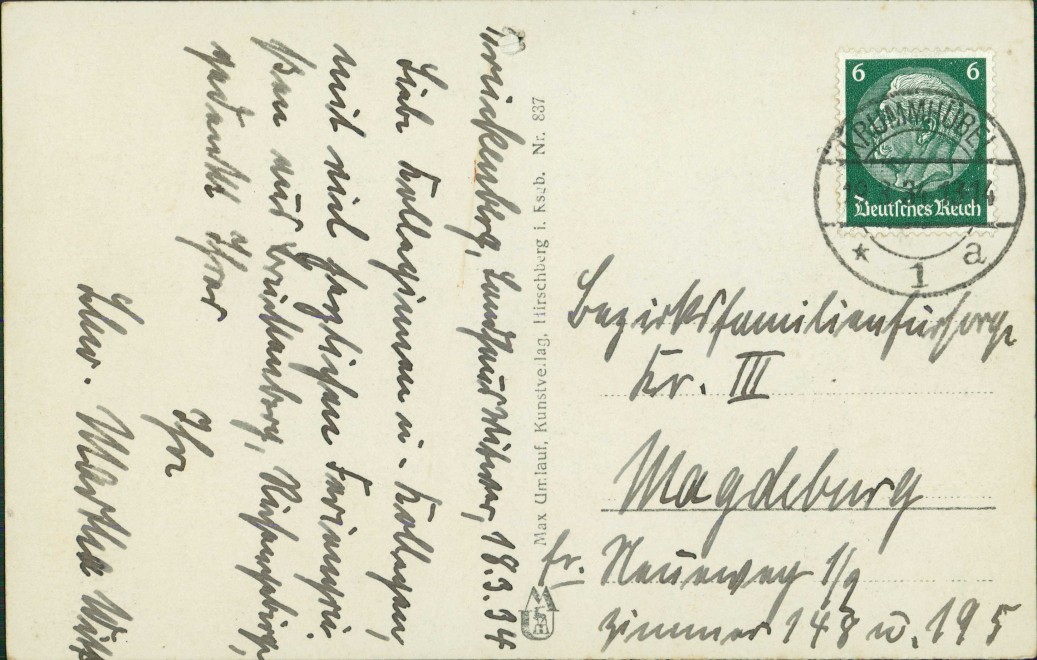 Brückenberg, Landhaus Wilmar, 18.3.34
Liebe Kolleginnen u. Kollegen,
mit viel herzlichen Feriengrü-
ßen aus Brückenberg, Riesengebirge,
gedenkt Ihrer
Ihre
Schw. Martha
Max Umlauf, Kunstverlag, Hirschberg i. Rsgb. Nr. 837
6 6
Deutsches Reich
KRUMMHÜBEL
34 13-14
* 1 a
Bezirksfamilienfürsorge
Kr. III
Magdeburg
Fr. Neueweg 1/2
Zimmer 148 u. 195